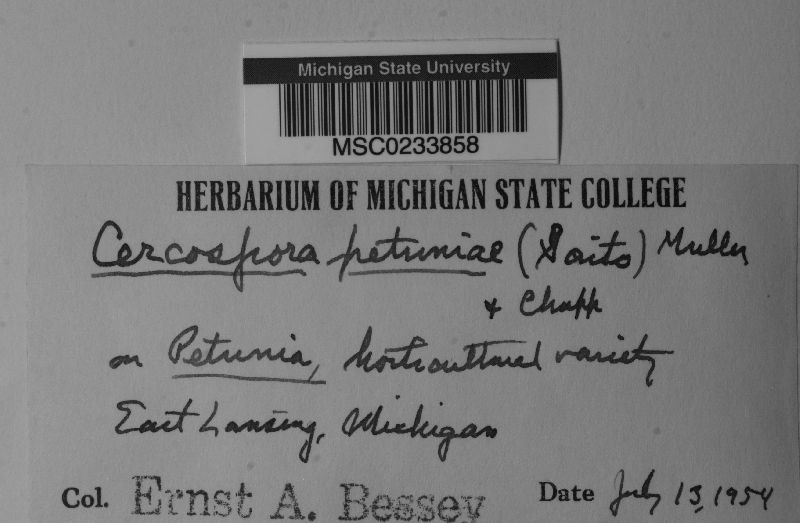 Michigan State University
MSC0233858
HERBARIUM OF MICHIGAN STATE COLLEGE
Cercospora petuniae (Saito) Muller
& Chupp
on Petunia, horticultural variety
East Lansing, Michigan
Col. Ernst A. Bessey Date July 13, 1954